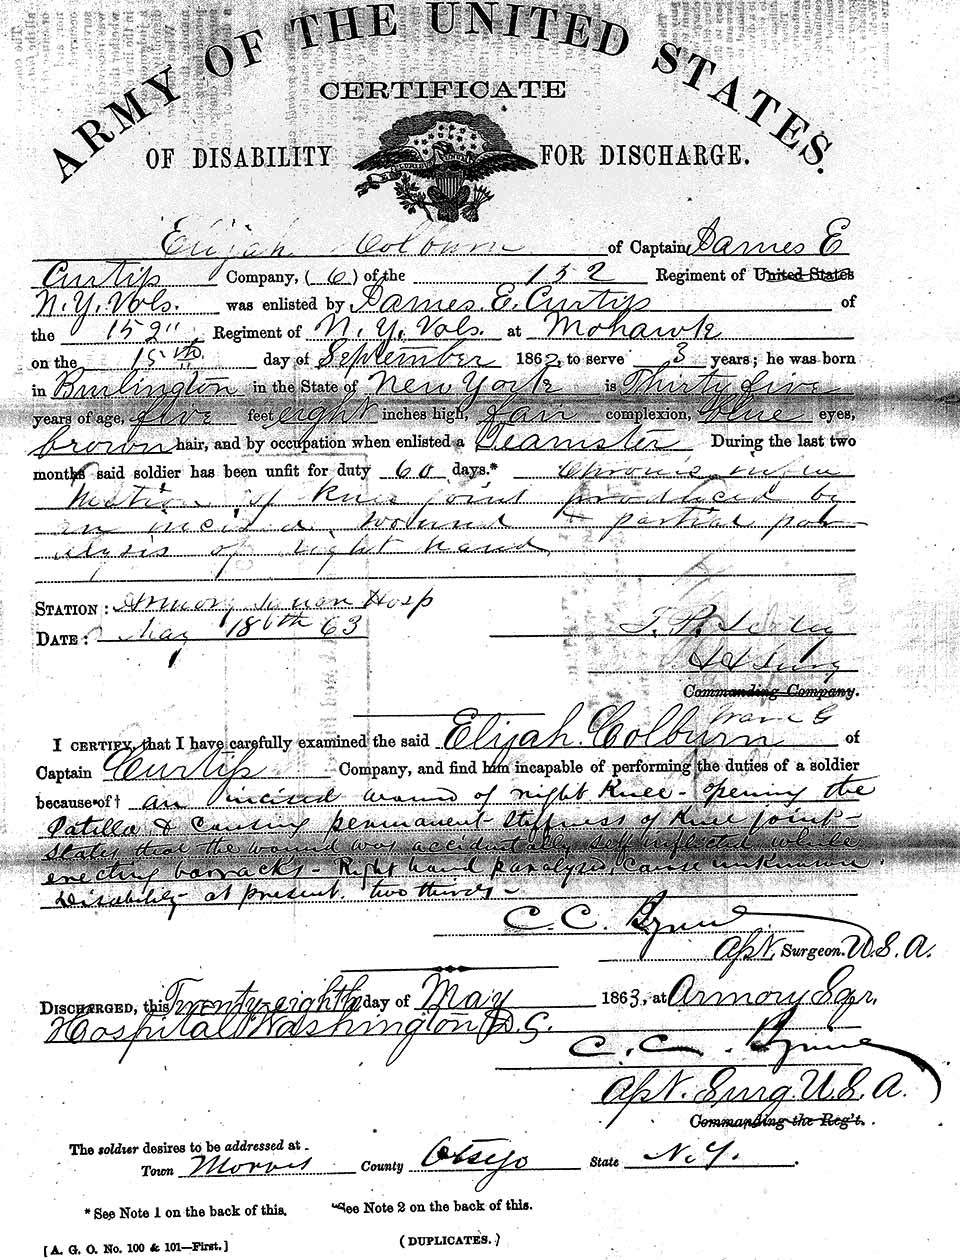 ARMY OF THE UNITED STATES.
CERTIFICATE
OF DISABILITY FOR DISCHARGE.
Elijah Colburn of Captain James E
Curtiss Company, (G) of the 152 Regiment of United States
N.Y. Vols. was enlisted by James E. Curtiss of
the 152" Regiment of N.Y. Vols. at Mohawk
on the 15th day of September 1862, to serve 3 years; he was born
in Burlington in the State of New York is Thirty five
years of age, five feet eight inches high, fair complexion, blue eyes,
brown hair, and by occupation when enlisted a Teamster During the last two
months said soldier has been unfit for duty 60 days.* Chronic inflam
mation of knee joint produced by
an incised wound & partial par-
alysis of right hand
STATION: Armory Square Hosp
DATE: May 18th 63
Surg
Commanding Company.
I CERTIFY, that I have carefully examined the said Elijah Colburn of
Captain Curtiss Company, and find him incapable of performing the duties of a soldier
because of† an incised wound of right Knee - opening the
Patella & causing permanent stiffness of Knee joint -
States that the wound was accidentally self inflicted while
erecting barracks - Right hand paralysed, cause unknown.
Disability at present two thirds -
C. C. Byrne
Asst. Surgeon. U.S.A.
DISCHARGED, this Twenty eighth day of May 1863, at Armory Sqr.
Hospital Washington D.C.
C. C. Byrne
Asst. Surg. U.S.A.
Commanding the Reg't.
The soldier desires to be addressed at
Town Morris County Otsego State N.Y.
* See Note 1 on the back of this. See Note 2 on the back of this.
[A. G. O. No. 100 & 101—First.] (DUPLICATES.)